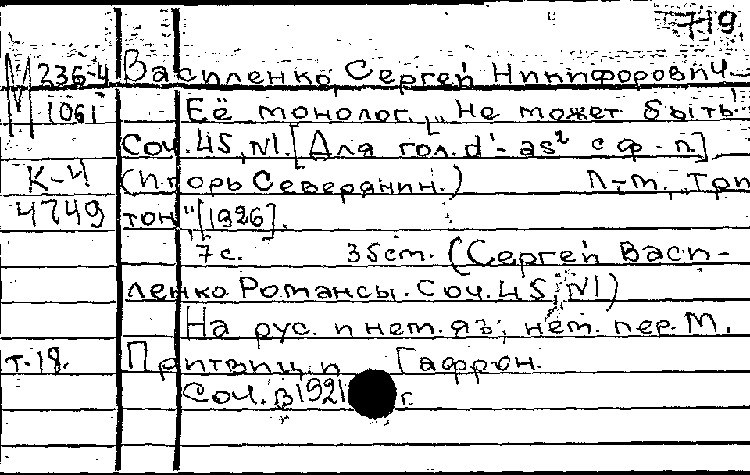 719
М 236-4 Василенко, Сергей Никифорович.
1061 Её монолог. „Не может быть"...
Соч. 45, №1. [Для гол. d'-as² с ф-п.]
К-4 (Игорь Северянин.) Л-т, „Три
4749 тон", [1926].
7 с. 35cm. (Сергей Васи-
ленко Романсы. Соч. 45, №1)
На рус. и нем. яз; нем. пер. М.
т-18. и Гафрон.
Соч. в 1921 г.